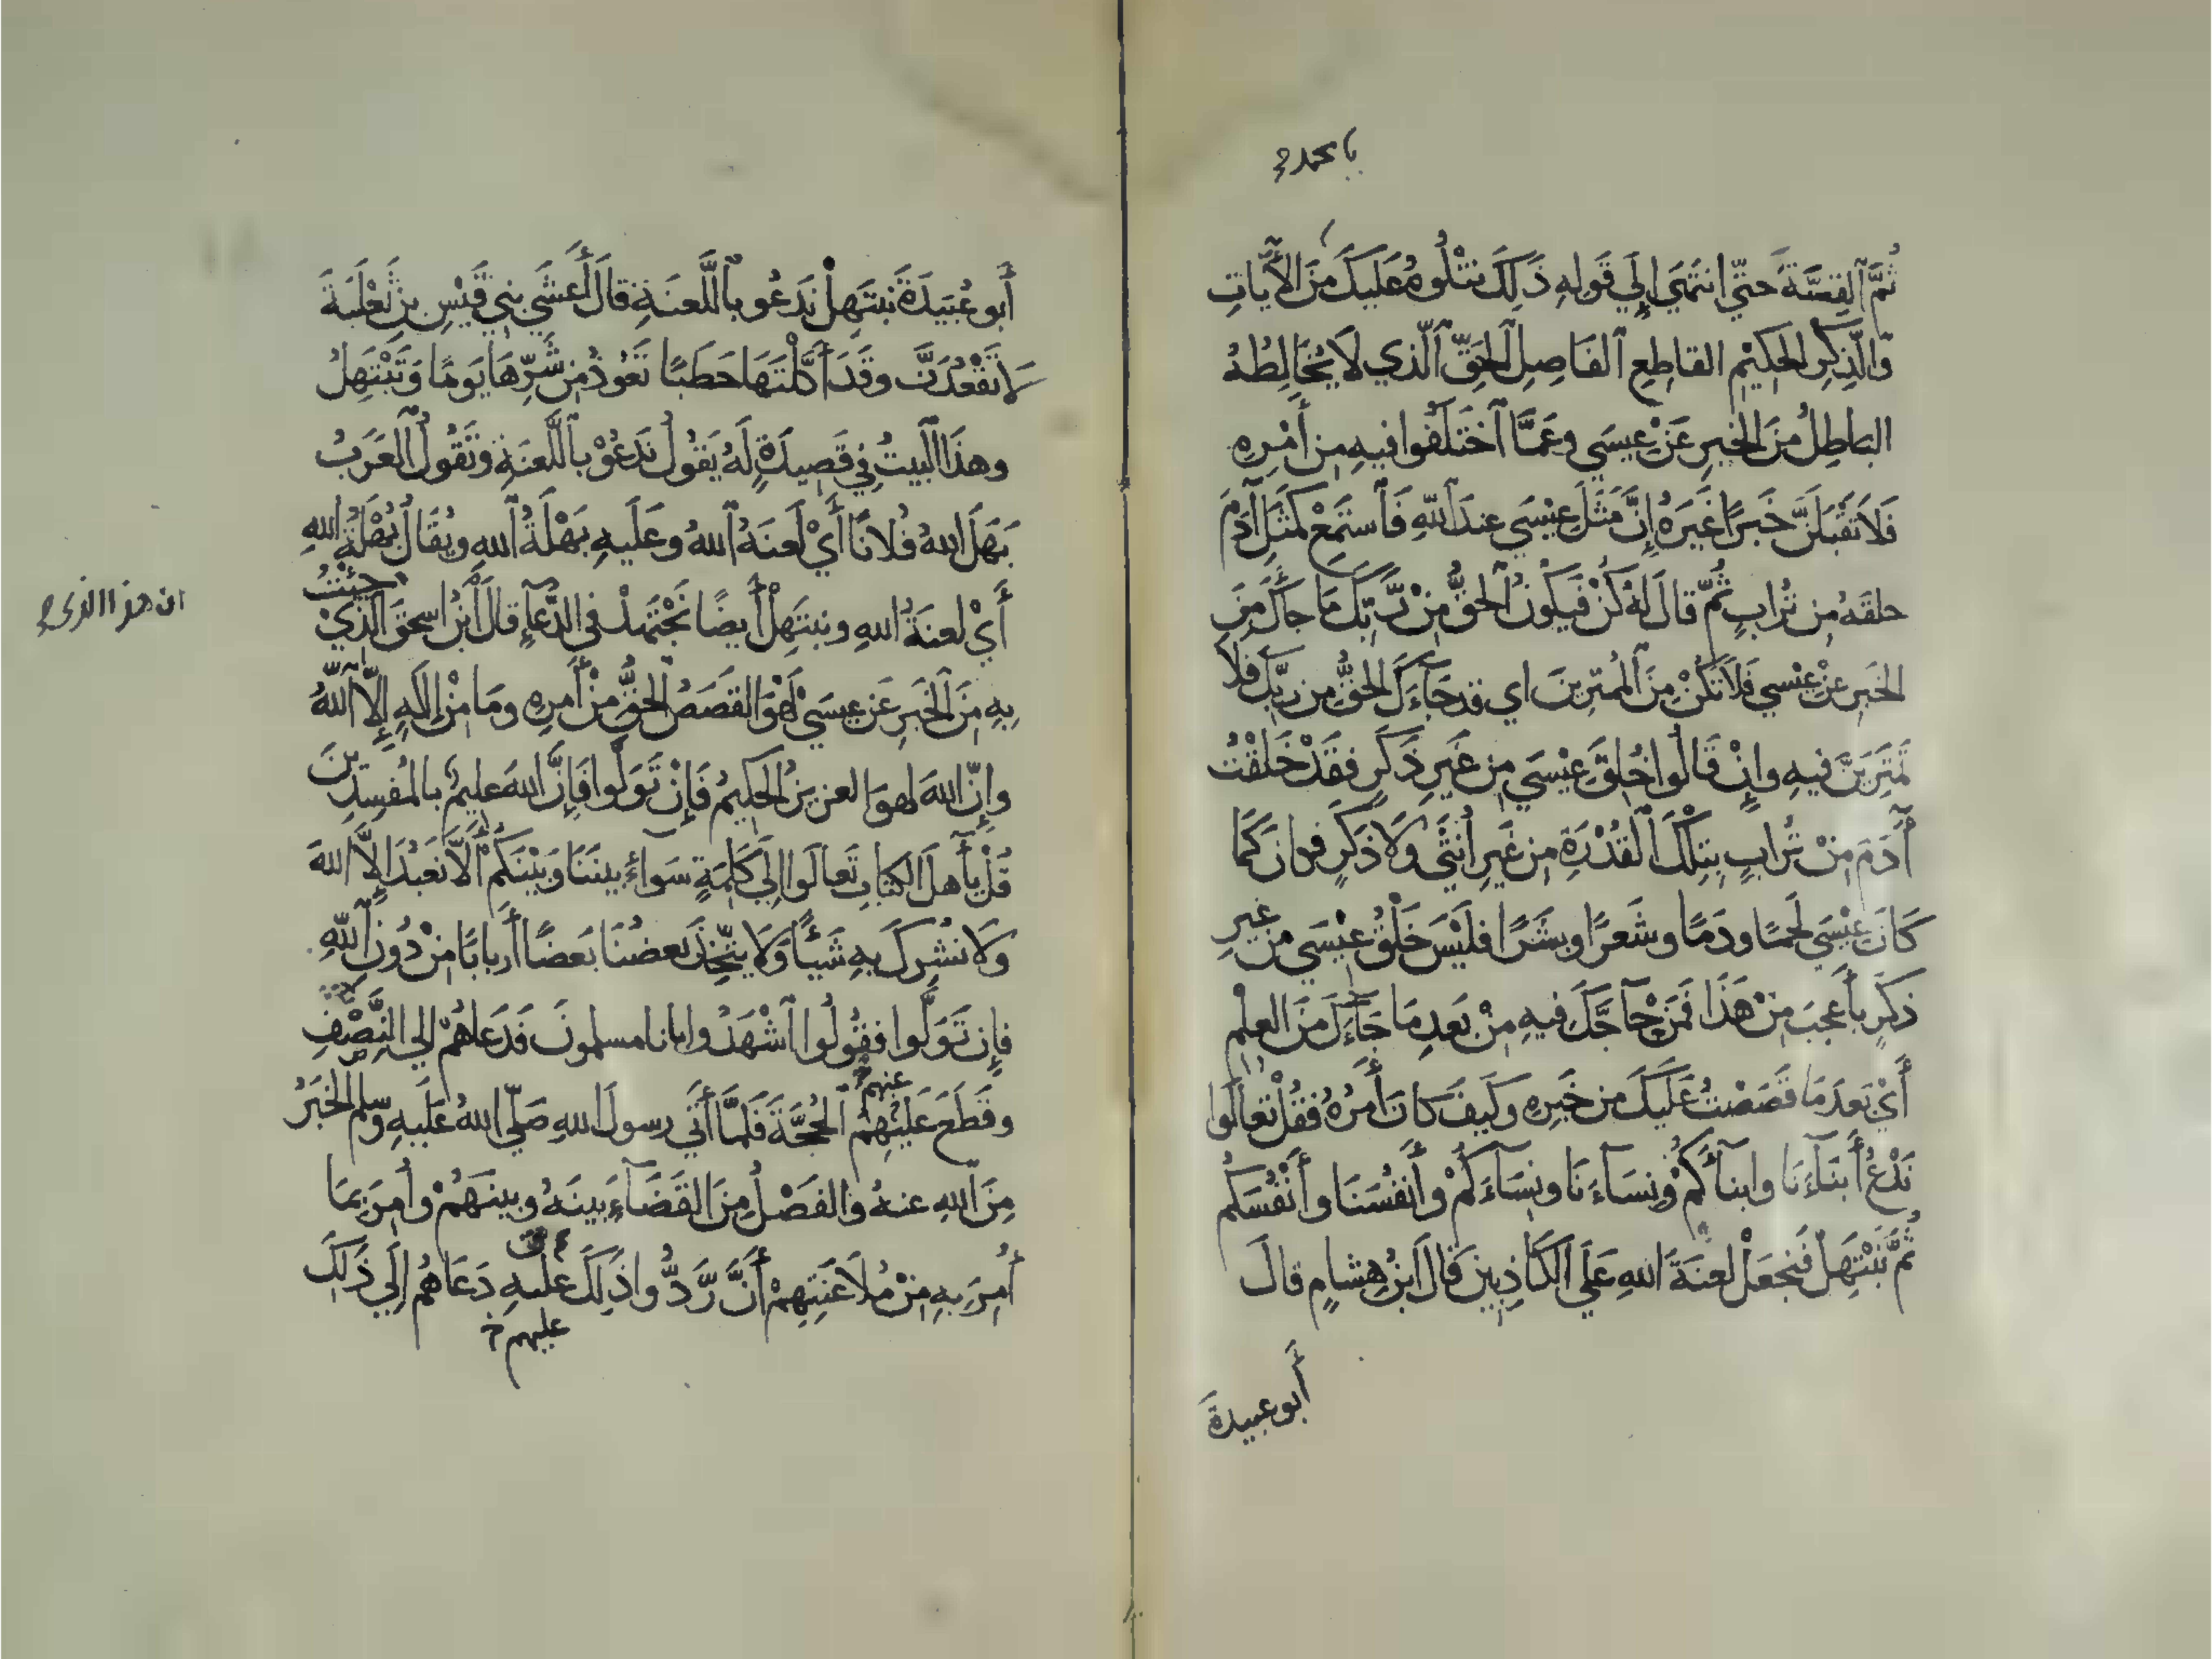 يا محمد
ثُمَّ ٱلقِصَّةَ حَتّي انتَهَي إِلَي قَولِهِ ذَلِكَ نتْلُوهُ عَلَيكَ مِنَ الآيَاتِ
وَالذِّكرِ الحكيْمِ القاطِعِ ٱلفَاصِلِ ٱلحَقِّ ٱلّذي لَا يُخَالِطُهُ
الباطِلُ مِنَ الخبرِ عَنْ عِيسَي وعَمَّا ٱختَلَفُوا فيهِ مِن أَمْرِهِ
فَلَا تَقْبَلَنَّ خَبرًا غَيرَهُ إِنَّ مَثَلَ عِيْسَي عندَ ٱللّهِ فَٱستَمِعْ كَمَثَلِ آدَمَ
خلقَهُ مِن تُرابٍ ثُمّ قالَ لَهُ كُنْ فَيَكُونُ ٱلحَقُّ مِنْ رَّبِّكَ مَا جآءكَ مِنَ
الخَبرِ عَنْ عِيْسي فَلَا تَكُنْ مِنَ ٱلمُمتَرِينَ اي قد جَآءَكَ الحَقُّ مِن رَبِّكَ فلَا
تَمْتَرِيَنَّ فيهِ وإِنْ قَالُوا خُلِقَ عِيْسَي مِن غَيرِ ذَكَرٍ فقَدْ خَلَقْتُ
آدَمَ مِنْ تُرابٍ بِتِلْكَ ٱلقُدْرَةِ مِن غَيرِ أُنثَي وَلَا ذَكَرٍ فكانَ كَمَا
كَانَ عِيْسَي لَحمًا ودَمًا وشَعرًا وبشَرًا فلَيْسَ خَلْقُ عِيْسَي مِن غيرِ
ذكَرٍ بأَعجَبَ مِنْ هَذَا فَمَنْ حآجَّكَ فيهِ مِنْ بَعدِ مَا جَآءَكَ مِنَ العِلْمِ
أَيْ بَعدَ مَا قَصَصْتُ عَلَيكَ من خَبَرِهِ وكَيفَ كانَ أَمرُهُ فقُلْ تعالَوا
نَدْعُ أَبنَآءَنَا وابنآءَكُمْ ونِسَآءَنَا ونِسَآءَكُمْ وأَنفُسَنَا وأَنْفُسَكُم
ثُمَّ نَبْتَهِلْ فَنجعَلْ لعنَةَ اللهِ عَلَي الكَاذِبِينَ قَالَ ابنُ هِشامٍ قالَ
أَبو عبيدةَ
أَبو عُبَيدَةَ نبتَهِلْ نَدعُو باللَّعنَةِ قالَ أَعشَي بني قَيْسِ بنِ ثَعْلَبَةَ
لَا تَقْعُدَنَّ وقَد أَكَّلْتَهَا حَطَبًا تَعُوذُ مِن شَرِّهَا يَومًا وَتَبْتَهِلُ
وهذَا ٱلبَيتُ فِي قَصِيدَةٍ لَهُ يَقُولُ نَدعُوْ باللَّعنَةِ وتَقُولُ ٱلعَرَبُ
بَهَلَ اللهُ فُلانًا أَيْ لَعنَهُ ٱللهُ وعَلَيهِ بَهْلَةُ ٱللهِ ويُقَالُ بُهْلَةُ اللهِ
أَيْ لعنَةُ اللهِ ونبتَهِلْ أَيضًا نَجْتَهِدْ في الدُّعآءِ قالَ ٱبْنُ اسحقَ ٱلذيْ جِئْتُ
ان هذا الذي
بِهِ مِنَ ٱلخَبَرِ عَن عِيسَيْ لَهُوَ القَصَصُ ٱلحَقُّ مِنْ أَمرِهِ ومَا مِنْ إِلَهٍ إِلّا ٱللّهُ
وإِنّ اللهَ لهوَ العزيزُ الحَكيمُ فَإِنْ تَوَلَّوا فَإِنَّ اللهَ عليمٌ بالمُفسِدِينَ
قُلْ يآأَهلَ الكتابِ تَعالَوا إِلَي كَلِمَةٍ سَوآءٍ بينَنَا وَبيْنَكُمْ أَلَّا نَعبُدَ إِلَّا اللهَ
وَلَا نشْرِكَ بهِ شَيْئًا وَلَا يتَّخِذَ بَعضُنَا بَعضًا أَربابًا مِنْ دُونِ ٱللّهِ
فإِن تَوَلَّوا فقُولُوا ٱشْهَدُوا بانا مسلمونَ فَدَعاهُمْ إلي النِّصْفِ
وقَطَعَ عَلَيْهِمُ ٱلحُجَّةَ فَلَمَّا أَتَي رسولَ اللهِ صَلّي اللهُ عَلَيهِ وسلم الخَبَرُ
عنهم
مِنَ ٱللهِ عنهُ وٱلفَصْلُ مِنَ القَضَآءِ بينَهُ وبينَهُمْ وأُمِرَ بِمَا
أُمِرَ بهِ مِنْ مُلَاعَنَتِهِمْ أَنْ رَّدُّوا ذَلِكَ علَيهِ دَعَاهُم إِلَي ذَلِكَ
عليهم خ